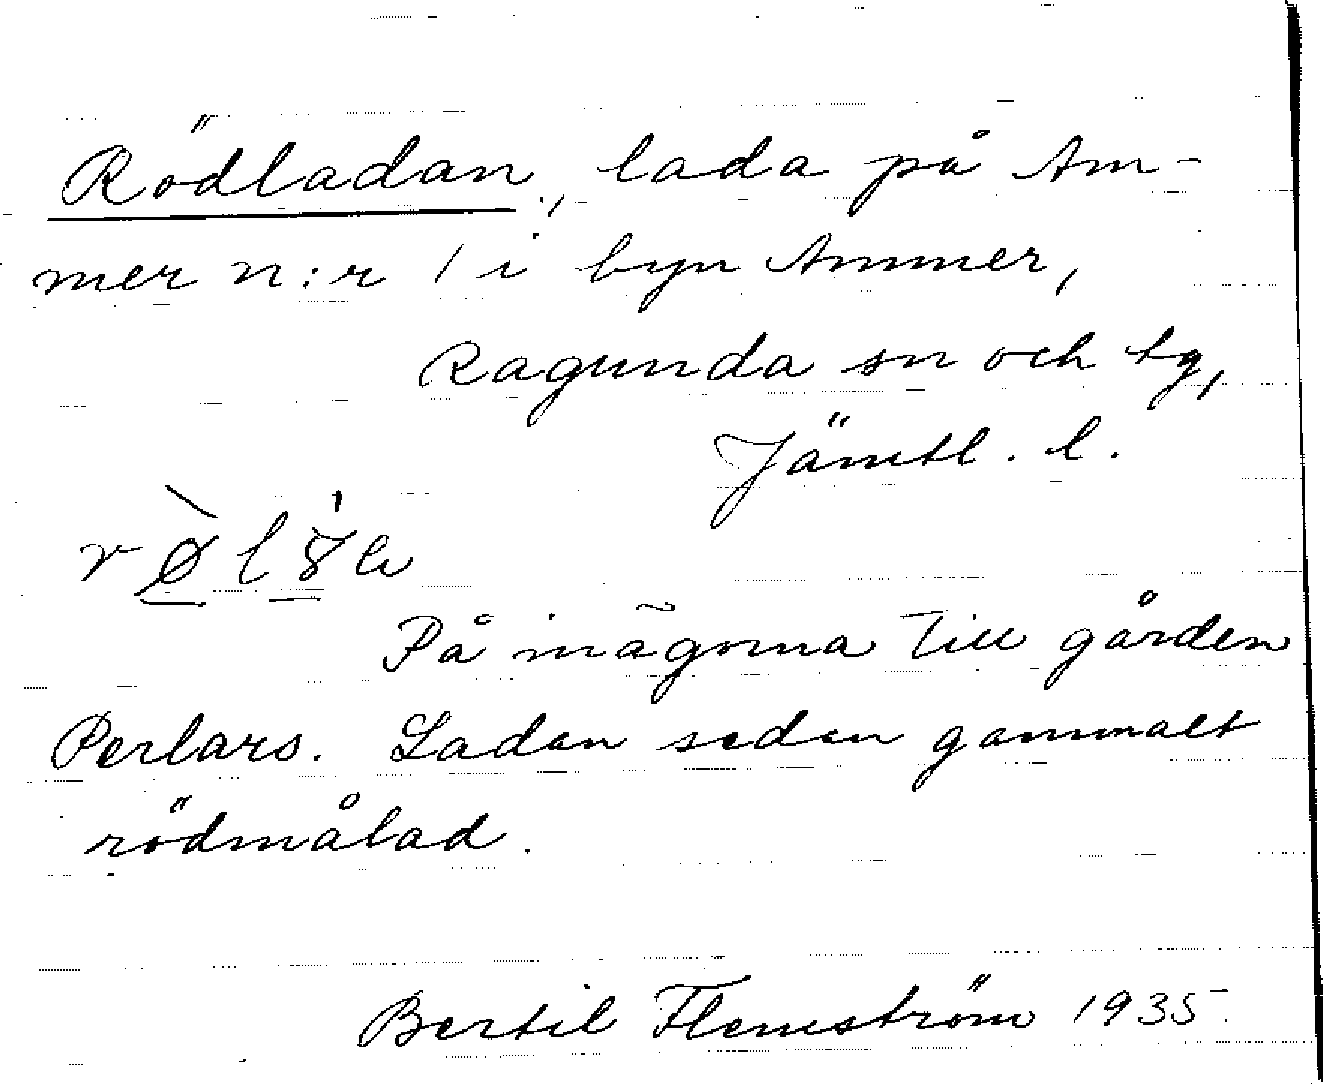 Rödladan, lada på Am-
mer n:r 1 i byn Ammer,
Ragunda sn och tg,
Jämtl. l.
På inägorna till gården
Perlars. Ladan sedan gammalt
rödmålad.
Bertil Flemström 1935.